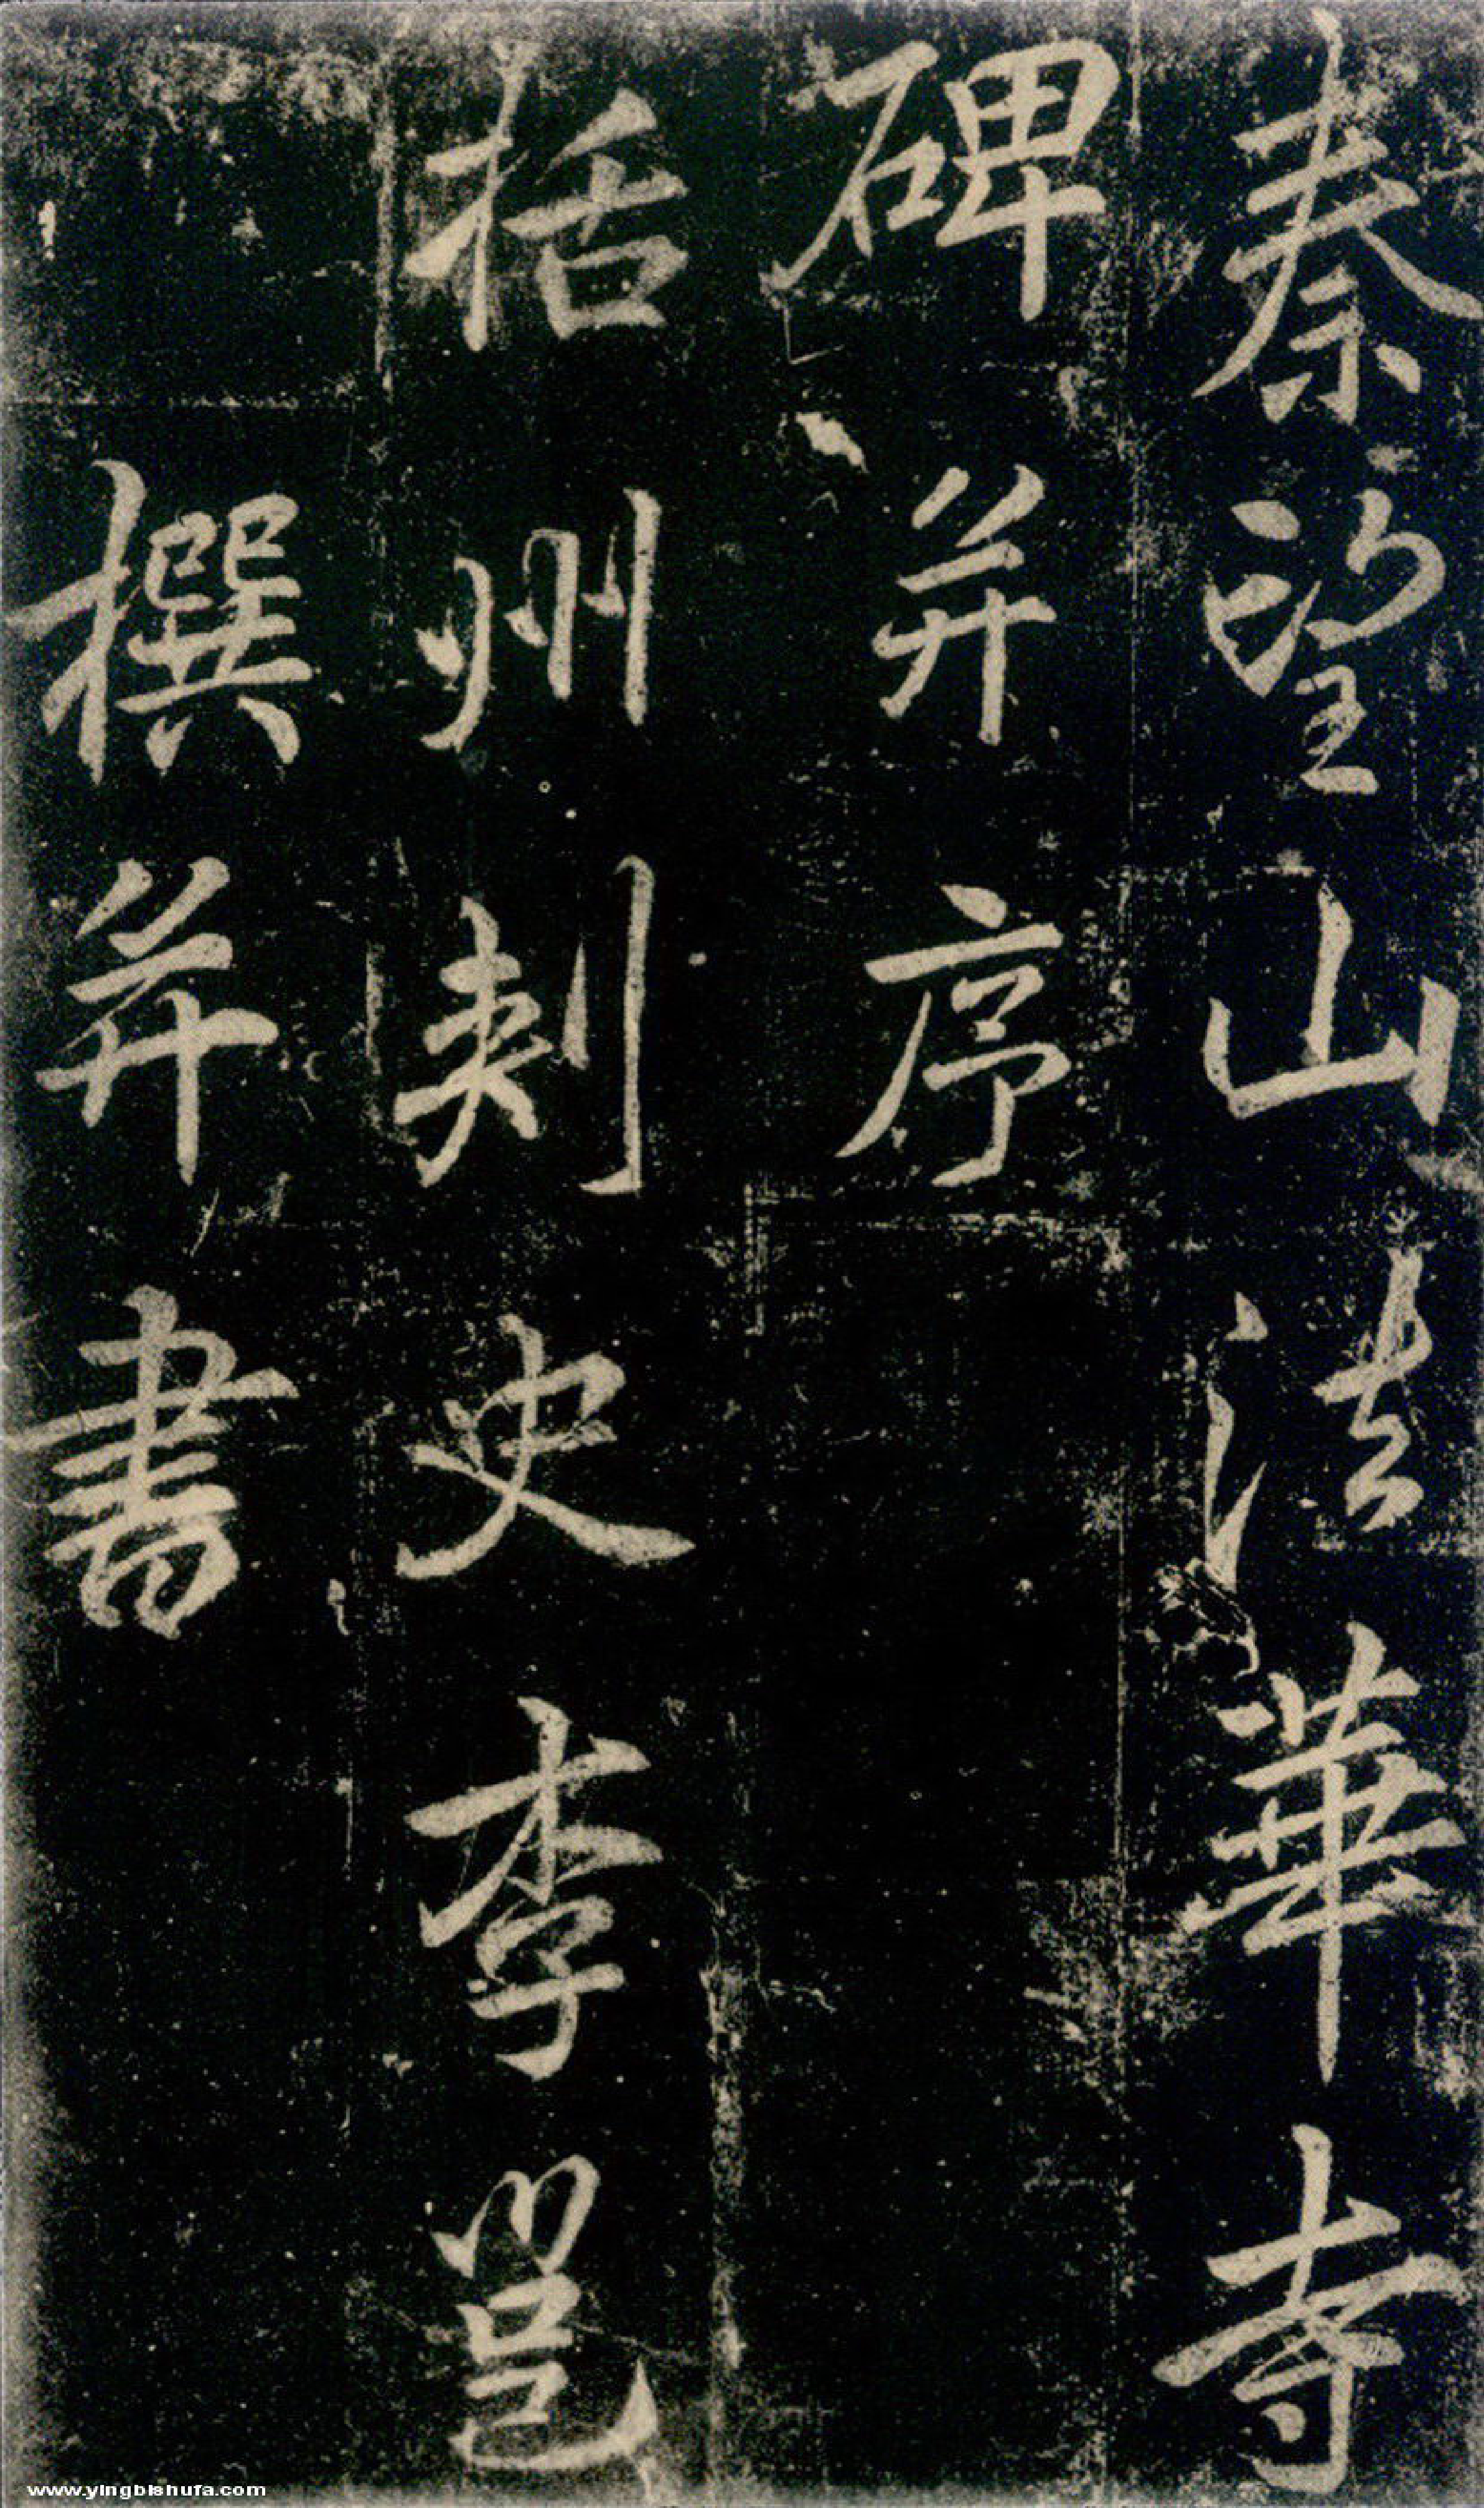 秦望山法華寺
碑并序
括州刺史李邕
撰并書
www.yingbishufa.com